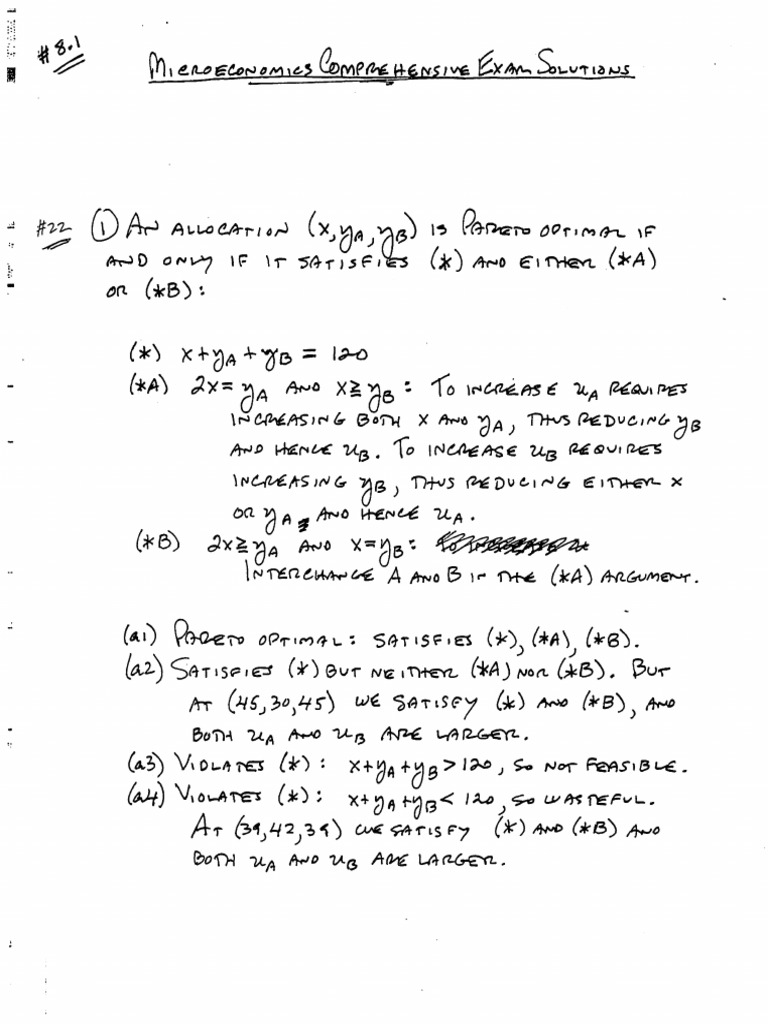 # 8.1
MICROECONOMICS COMPREHENSIVE EXAM SOLUTIONS
#22 ① AN ALLOCATION (x, yA, yB) IS PARETO OPTIMAL IF
AND ONLY IF IT SATISFIES (*) AND EITHER (*A)
OR (*B):
(*) x+yA+yB = 120
(*A) 2x=yA AND x≥yB: TO INCREASE uA REQUIRES
INCREASING BOTH x AND yA, THUS REDUCING yB
AND HENCE uB. TO INCREASE uB REQUIRES
INCREASING yB, THUS REDUCING EITHER x
OR yA, AND HENCE uA.
(*B) 2x≥yA AND x=yB:
INTERCHANGE A AND B IN THE (*A) ARGUMENT.
(a1) PARETO OPTIMAL: SATISFIES (*), (*A), (*B).
(a2) SATISFIES (*) BUT NEITHER (*A) NOR (*B). BUT
AT (45,30,45) WE SATISFY (*) AND (*B), AND
BOTH uA AND uB ARE LARGER.
(a3) VIOLATES (*): x+yA+yB>120, SO NOT FEASIBLE.
(a4) VIOLATES (*): x+yA+yB<120, SO WASTEFUL.
AT (39,42,39) WE SATISFY (*) AND (*B) AND
BOTH uA AND uB ARE LARGER.